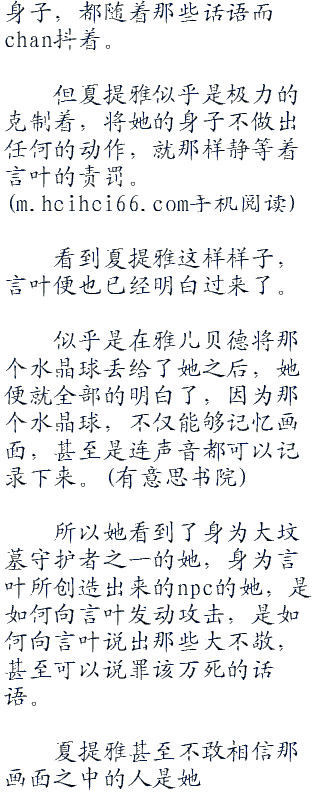 身子，都随着那些话语而
chan抖着。
但夏提雅似乎是极力的
克制着，将她的身子不做出
任何的动作，就那样静等着
言叶的责罚。
(m.hcihci66.com手机阅读)
看到夏提雅这样样子，
言叶便也已经明白过来了。
似乎是在雅儿贝德将那
个水晶球丢给了她之后，她
便就全部的明白了，因为那
个水晶球，不仅能够记忆画
面，甚至是连声音都可以记
录下来。(有意思书院)
所以她看到了身为大坟
墓守护者之一的她，身为言
叶所创造出来的npc的她，是
如何向言叶发动攻击，是如
何向言叶说出那些大不敬，
甚至可以说罪该万死的话
语。
夏提雅甚至不敢相信那
画面之中的人是她